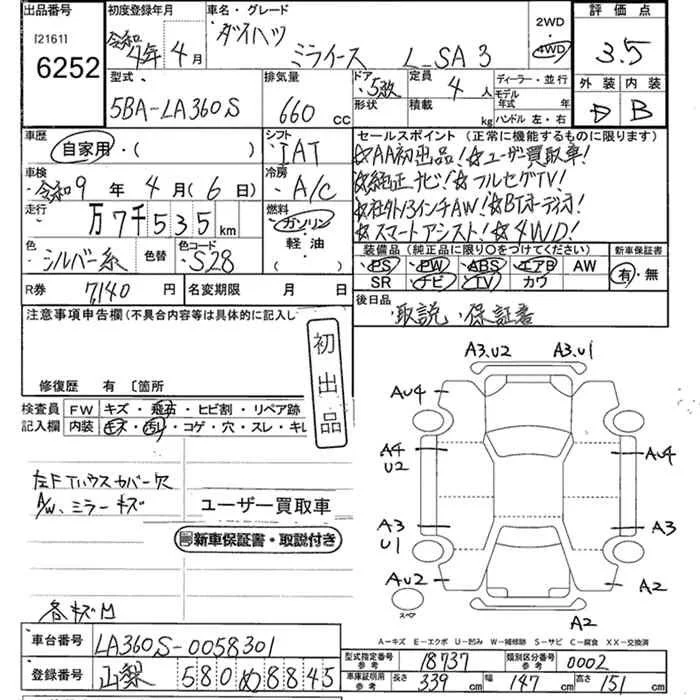 出品番号
[2161]
6252
初度登録年月
令和4年4月
車名・グレード
ダイハツ
ミライース L SA3
2WD
4WD
評価点
3.5
外装 内装
D B
型式
5BA-LA360S
排気量
660 cc
ドア 5 形状
定員 4人
積載 kg
ディーラー・並行
モデル年式 年
ハンドル 左・右
車歴
自家用・( )
シフト
IAT
車検
令和9年4月(6日)
冷房
A/C
走行
万7千535km
燃料
ガソリン
軽油
( )
色
シルバー系
色替
色コード
S28
R券 7,140 円
名変期限 月 日
セールスポイント(正常に機能するものに限ります)
☆AA初出品!☆ユーザー買取車!
☆純正ナビ!☆フルセグTV!
☆社外13インチAW!☆BTオーディオ!
☆スマートアシスト!☆4WD!
装備品(純正品に限り○をつけてください)
PS PW ABS エアB AW
SR ナビ TV カワ
新車保証書
有・無
後日品
・取説・保証書
注意事項申告欄(不具合内容等は具体的に記入し
修復歴 有 〔箇所
初出品
検査員記入欄
FW キズ・飛石・ヒビ割・リペア跡
内装 キズ・汚れ・コゲ・穴・スレ・キレ
左FTハウスカバー欠
A/W、ミラーキズ
ユーザー買取車
新車保証書・取説付き
各キズ凹
車台番号 LA360S-0058301
登録番号 山梨 580 め 8845
A3.U2 A3.U1
AU4
A4
U2
AU4
A3
U1
A3
AU2
A2
A2
スペア
A-キズ E-エクボ U-凹み W-補修跡 S-サビ C-腐食 XX-交換済
型式指定番号参考 18737
類別区分番号参考 0002
車庫証明用参考 長さ 339 cm 幅 147 cm 高さ 151 cm